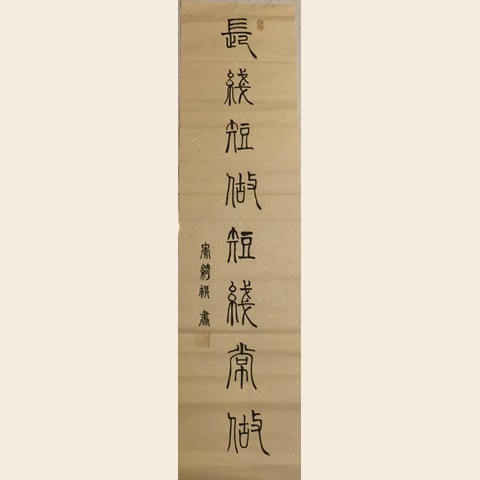 長綫短做短綫常做
書